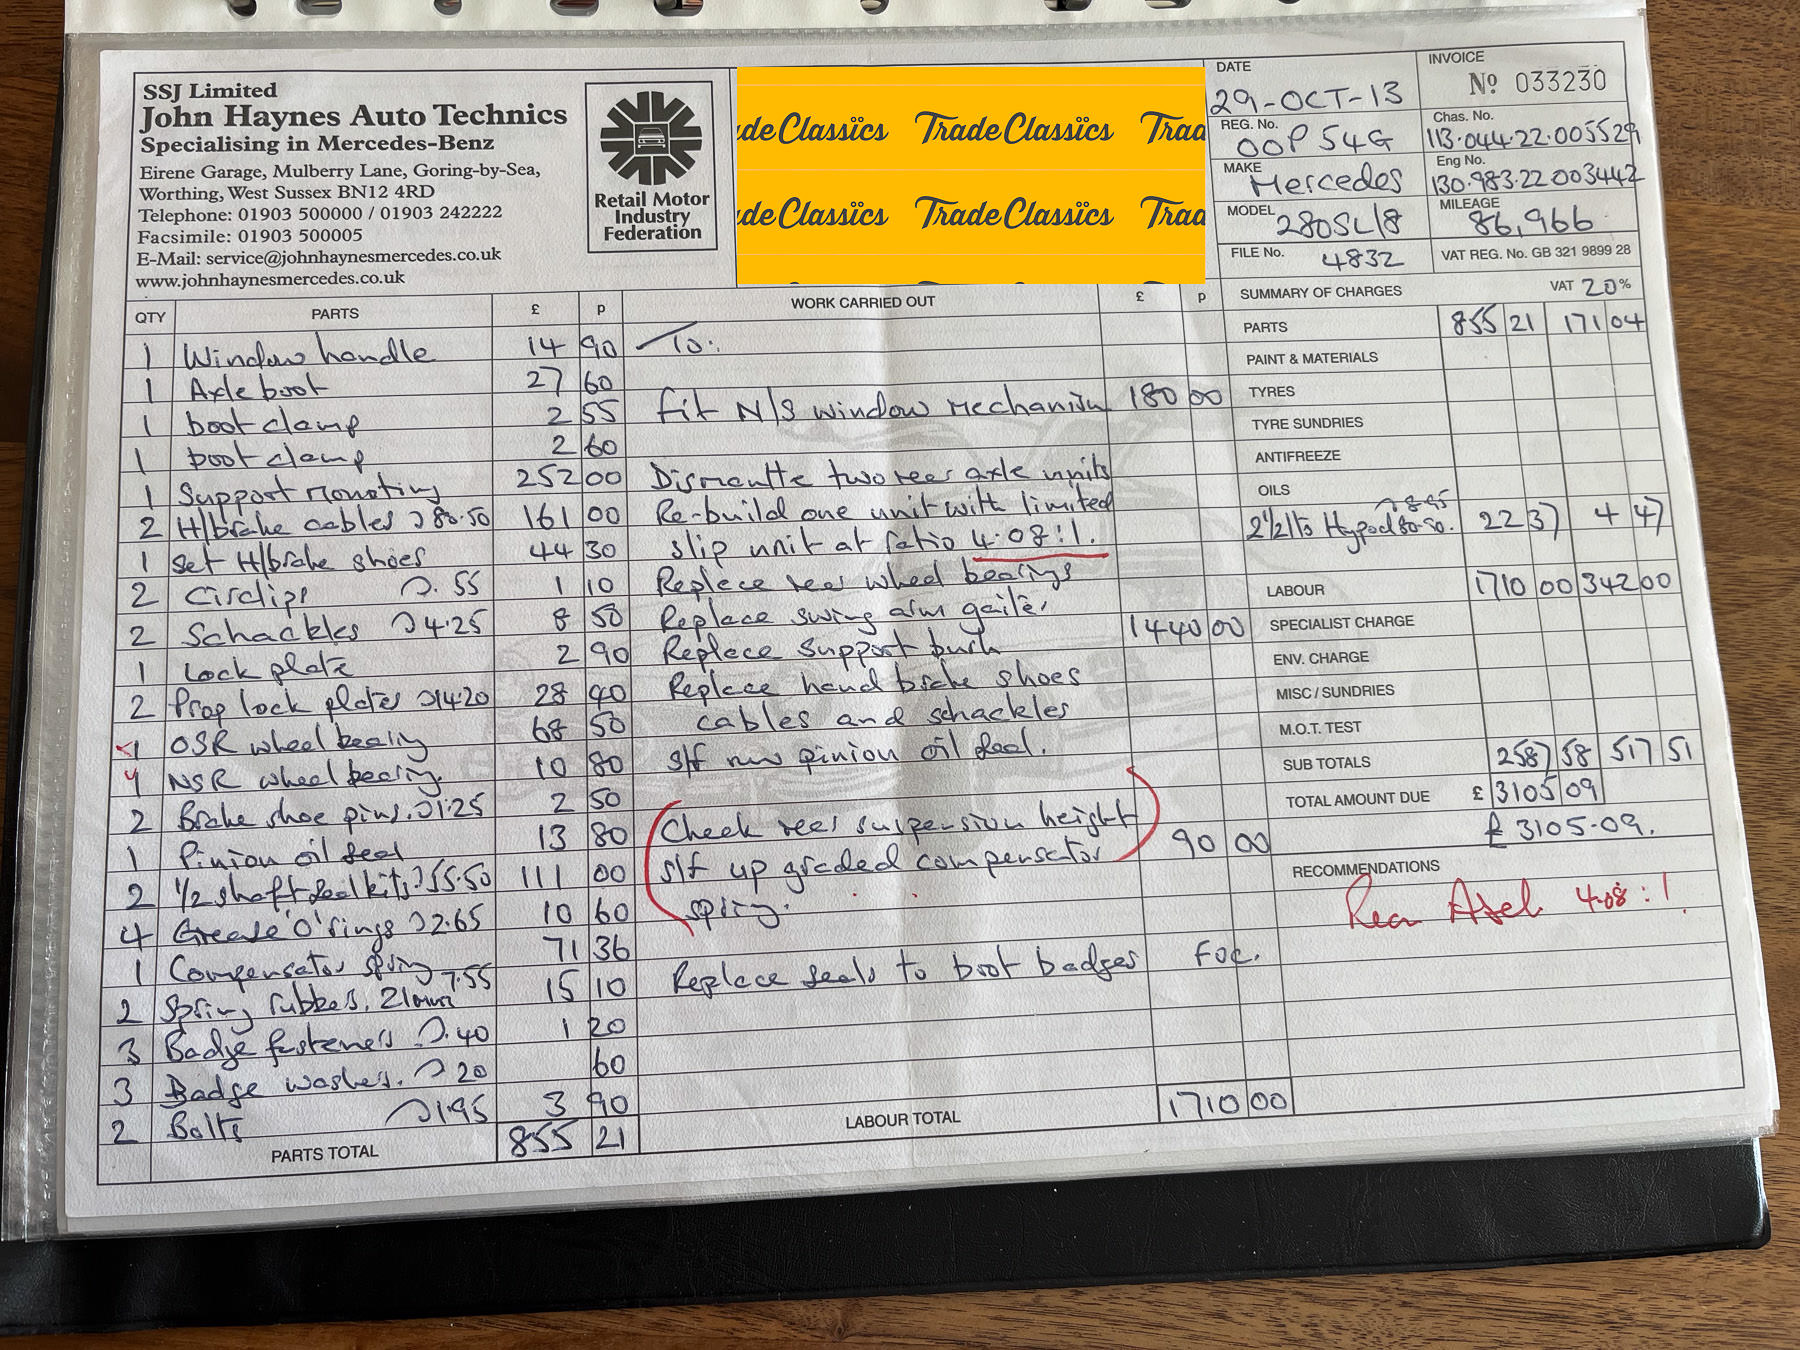 SSJ Limited
John Haynes Auto Technics
Specialising in Mercedes-Benz
Eirene Garage, Mulberry Lane, Goring-by-Sea,
Worthing, West Sussex BN12 4RD
Telephone: 01903 500000 / 01903 242222
Facsimile: 01903 500005
E-Mail: service@johnhaynesmercedes.co.uk
www.johnhaynesmercedes.co.uk
Retail Motor
Industry
Federation
de Classics Trade Classics Trad
de Classics Trade Classics Trad
DATE 29-OCT-13
INVOICE No 033230
REG. No. OOP 54G
Chas. No. 113.044.22.005529
MAKE Mercedes
Eng No. 130.983.22 003442
MODEL 280SL/8
MILEAGE 86,966
FILE No. 4832
VAT REG. No. GB 321 9899 28
QTY PARTS £ p
1 Window handle 14 90
1 Axle boot 27 60
1 boot clamp 2 55
1 boot clamp 2 60
1 Support mounting 252 00
2 H/brake cables 80.50 161 00
1 set H/brake shoes 44 30
2 Circlips .55 1 10
2 Schackles 4.25 8 50
1 Lock plate 2 90
2 Prop lock plates 14.20 28 40
1 OSR wheel bearing 68 50
1 NSR wheel bearing 10 80
2 Brake shoe pins. 1.25 2 50
1 Pinion oil seal 13 80
2 1/2 shaft seal kits 55.50 111 00
4 Grease 'O' rings 2.65 10 60
1 Compensator spring 71 36
2 Spring rubbers. 21mm 7.55 15 10
3 Badge fasteners .40 1 20
3 Badge washers. 20 60
2 Bolts 1.95 3 90
PARTS TOTAL 855 21
WORK CARRIED OUT £ p
To:
fit N/S window mechanism 180 00
Dismantle two rear axle units
Re-build one unit with limited
slip unit at ratio 4.08:1.
Replace rear wheel bearings
Replace swing arm gaiter
Replace support bush 1440 00
Replace hand brake shoes
cables and schackles
s/f new pinion oil seal.
(Check rear suspension height
s/f up graded compensator) 90 00
spring.
Replace seals to boot badges FOC.
LABOUR TOTAL 1710 00
SUMMARY OF CHARGES VAT 20%
PARTS 855 21 171 04
PAINT & MATERIALS
TYRES
TYRE SUNDRIES
ANTIFREEZE
OILS
2 1/2 lts Hypod 80-90. 8.95 22 37 4 47
LABOUR 1710 00 342 00
SPECIALIST CHARGE
ENV. CHARGE
MISC / SUNDRIES
M.O.T. TEST
SUB TOTALS 2587 58 517 51
TOTAL AMOUNT DUE £ 3105 09
£3105.09.
RECOMMENDATIONS
Rear Axel 4.08:1